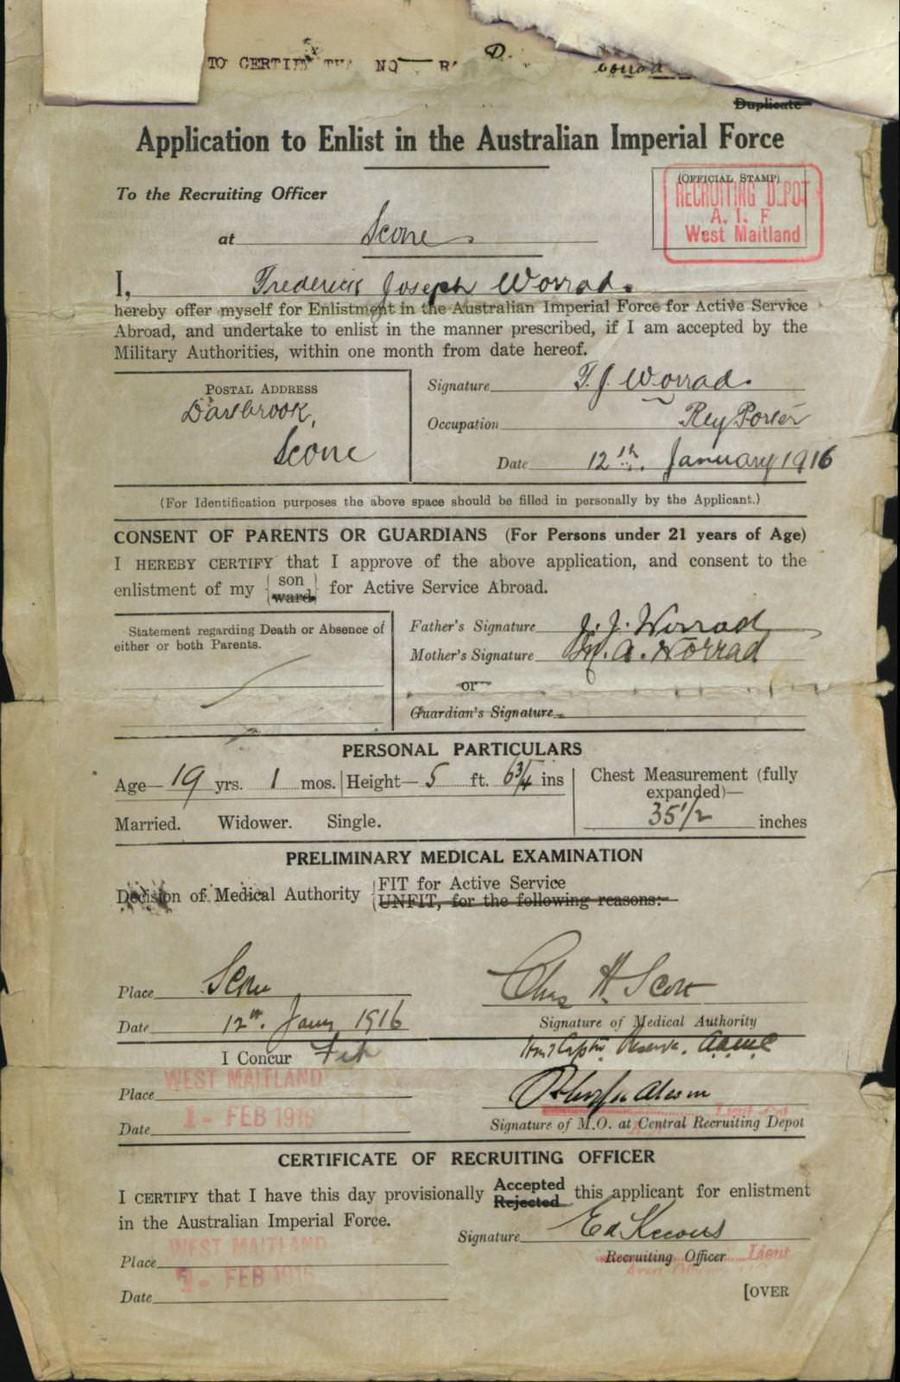 TO CERTIFY THA NO
Duplicate
Application to Enlist in the Australian Imperial Force
To the Recruiting Officer
(OFFICIAL STAMP)
RECRUITING DEPOT
A. I. F
West Maitland
at Scone
I, Frederick Joseph Worrad.
hereby offer myself for Enlistment in the Australian Imperial Force for Active Service
Abroad, and undertake to enlist in the manner prescribed, if I am accepted by the
Military Authorities, within one month from date hereof.
POSTAL ADDRESS
Dartbrook,
Scone
Signature F. J. Worrad.
Occupation Rly Porter
Date 12th. January 1916
(For Identification purposes the above space should be filled in personally by the Applicant.)
CONSENT OF PARENTS OR GUARDIANS (For Persons under 21 years of Age)
I HEREBY CERTIFY that I approve of the above application, and consent to the
enlistment of my son ward for Active Service Abroad.
Statement regarding Death or Absence of
either or both Parents.
Father's Signature J. J. Worrad
Mother's Signature M. A. Worrad
or
Guardian's Signature
PERSONAL PARTICULARS
Age— 19 yrs. 1 mos. Height— 5 ft. 6 3/4 ins
Chest Measurement (fully
expanded)—
35 1/2 inches
Married. Widower. Single.
PRELIMINARY MEDICAL EXAMINATION
Decision of Medical Authority
FIT for Active Service
UNFIT, for the following reasons:—
Place Scone
Chas H. Scott
Date 12th. Jany 1916
Signature of Medical Authority
I Concur Fit
Reserve. AAMC
WEST MAITLAND
Place
1 - FEB 1916
Date
Signature of M.O. at Central Recruiting Depot
CERTIFICATE OF RECRUITING OFFICER
I CERTIFY that I have this day provisionally Accepted Rejected this applicant for enlistment
in the Australian Imperial Force.
Signature
WEST MAITLAND
Place
Recruiting Officer Lieut
1 - FEB 1916
Date
[OVER